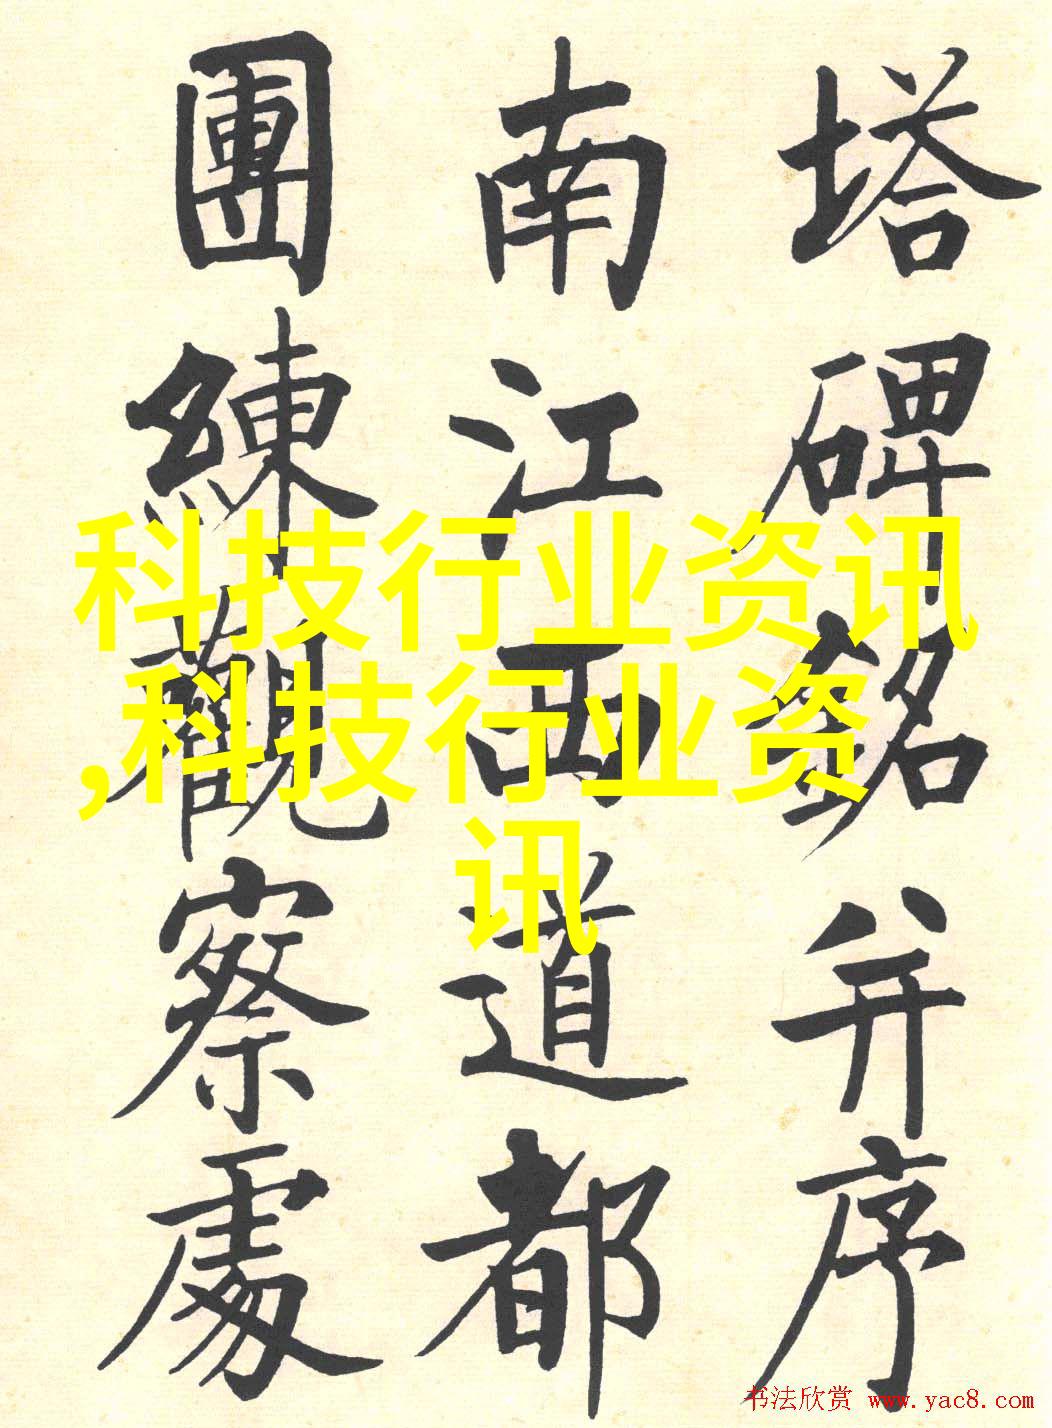 塔碑銘并序
南江西道都
團練觀察處
科技行业资讯
,科技行业资
讯
书法欣赏 www.yac8.com